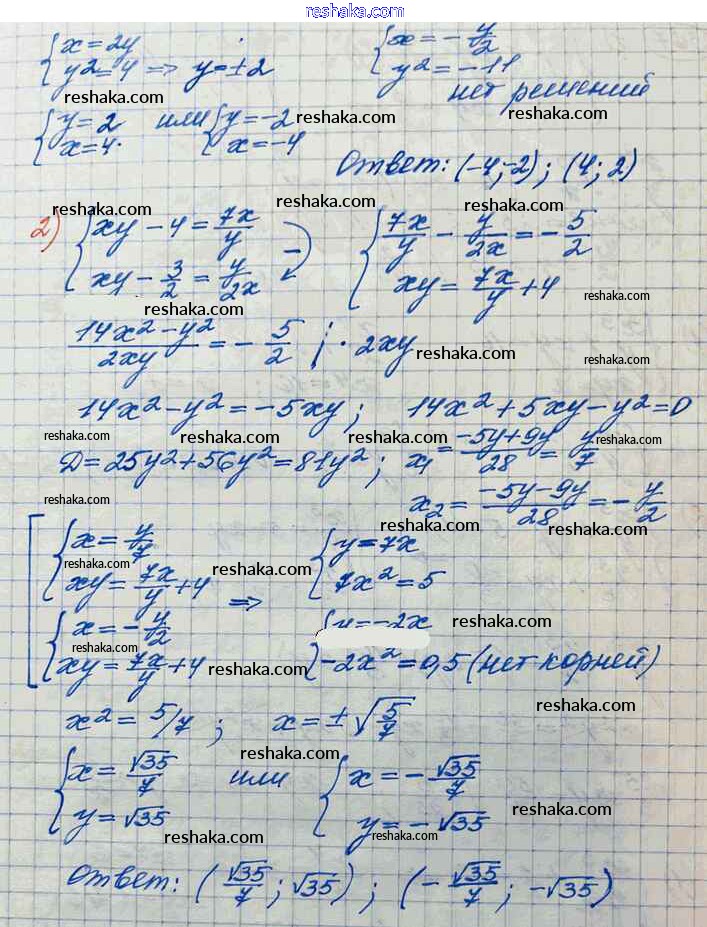 reshaka.com
{x = 2y
y² = 4 => y = ±2
{x = -y/2
y² = -11
нет решений
reshaka.com
{y = 2
x = 4.
или {y = -2
x = -4
reshaka.com
reshaka.com
Ответ: (-4; -2); (4; 2)
reshaka.com
reshaka.com
reshaka.com
2) {xy - 4 = 7x/y
xy - 3/2 = y/2x
-
{7x/y - y/2x = -5/2
xy = 7x/y + 4
reshaka.com
reshaka.com
(14x² - y²)/2xy = -5/2 | · 2xy
reshaka.com
reshaka.com
14x² - y² = -5xy; 14x² + 5xy - y² = 0
reshaka.com
reshaka.com
reshaka.com
reshaka.com
Д = 25y² + 56y² = 81y²; x₁ = (-5y + 9y)/28 = y/7
reshaka.com
x₂ = (-5y - 9y)/28 = -y/2
reshaka.com
reshaka.com
[{x = y/7
xy = 7x/y + 4
reshaka.com
reshaka.com
=>
{y = 7x
7x² = 5
reshaka.com
{x = -y/2
xy = 7x/y + 4
reshaka.com
reshaka.com
{y = -2x
-2x² = 0,5 (нет корней)
reshaka.com
reshaka.com
x² = 5/7; x = ±√(5/7)
reshaka.com
{x = √35/7
y = √35
или
{x = -√35/7
y = -√35
reshaka.com
reshaka.com
reshaka.com
Ответ: (√35/7; √35); (-√35/7; -√35)